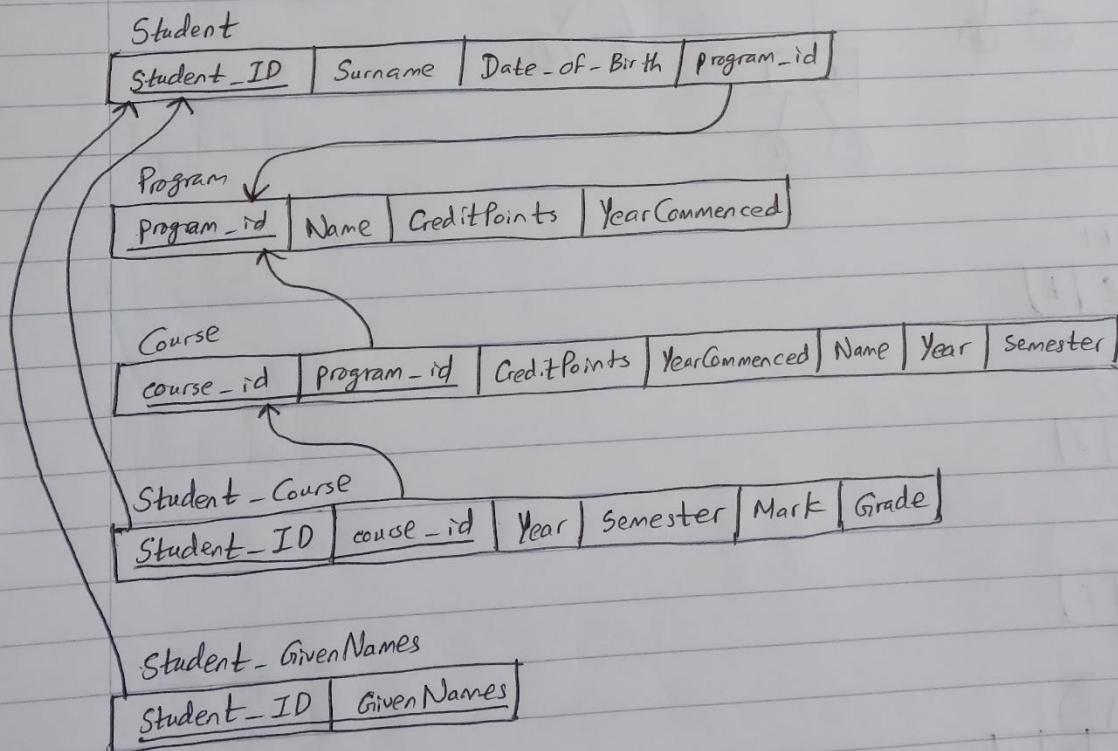 Student
Student_ID Surname Date_of_Birth program_id
Program
program_id Name CreditPoints YearCommenced
Course
course_id program_id CreditPoints YearCommenced Name Year Semester
Student_Course
Student_ID couse_id Year Semester Mark Grade
Student_GivenNames
Student_ID GivenNames